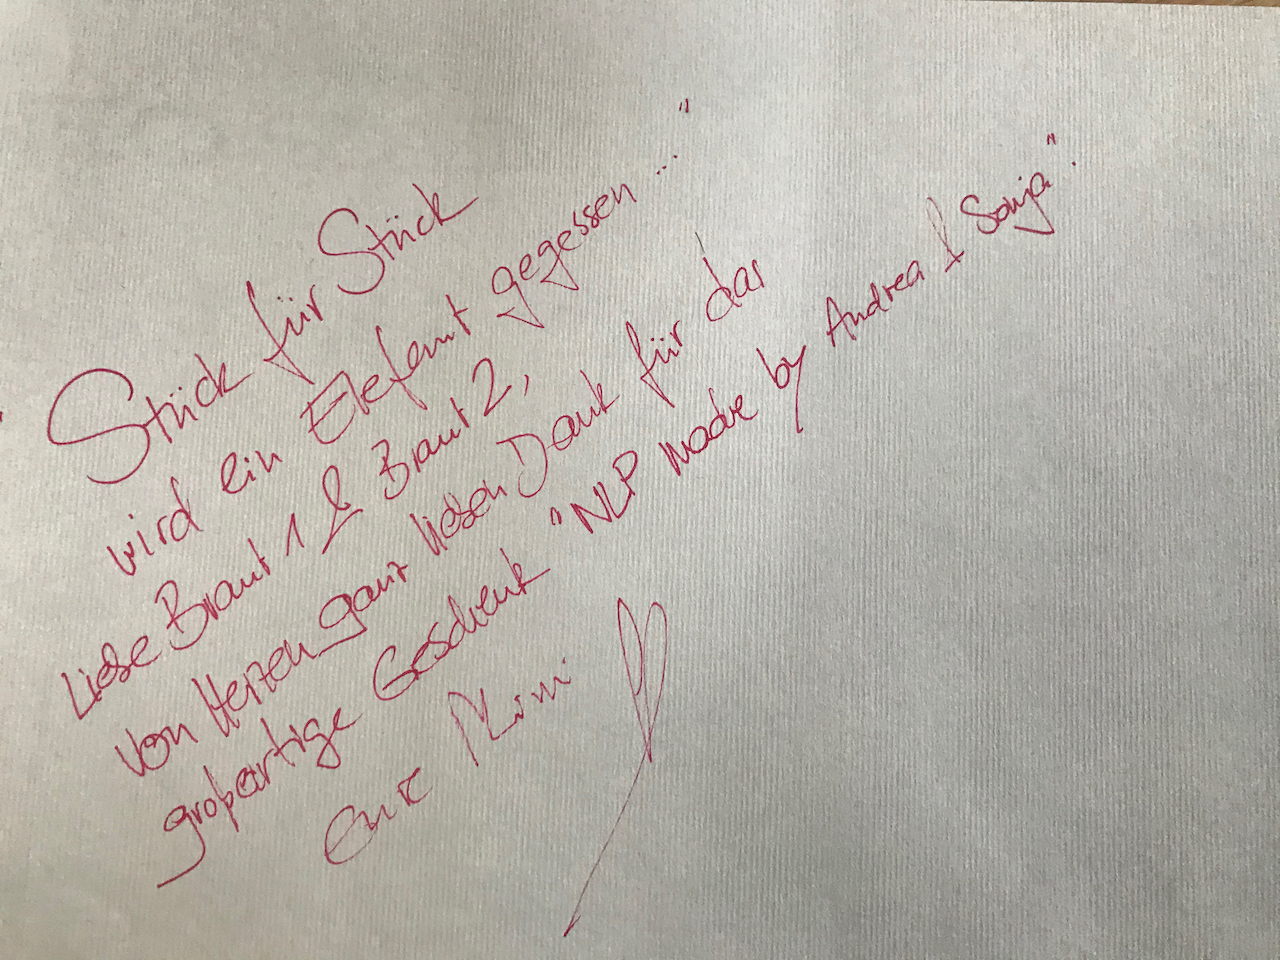 "Stück für Stück
wird ein Elefant gegessen..."
Liebe Braut 1 & Braut 2,
von Herzen ganz lieben Dank für das
großartige Geschenk "NLP made by Andrea & Sonja".
Eure Mimi